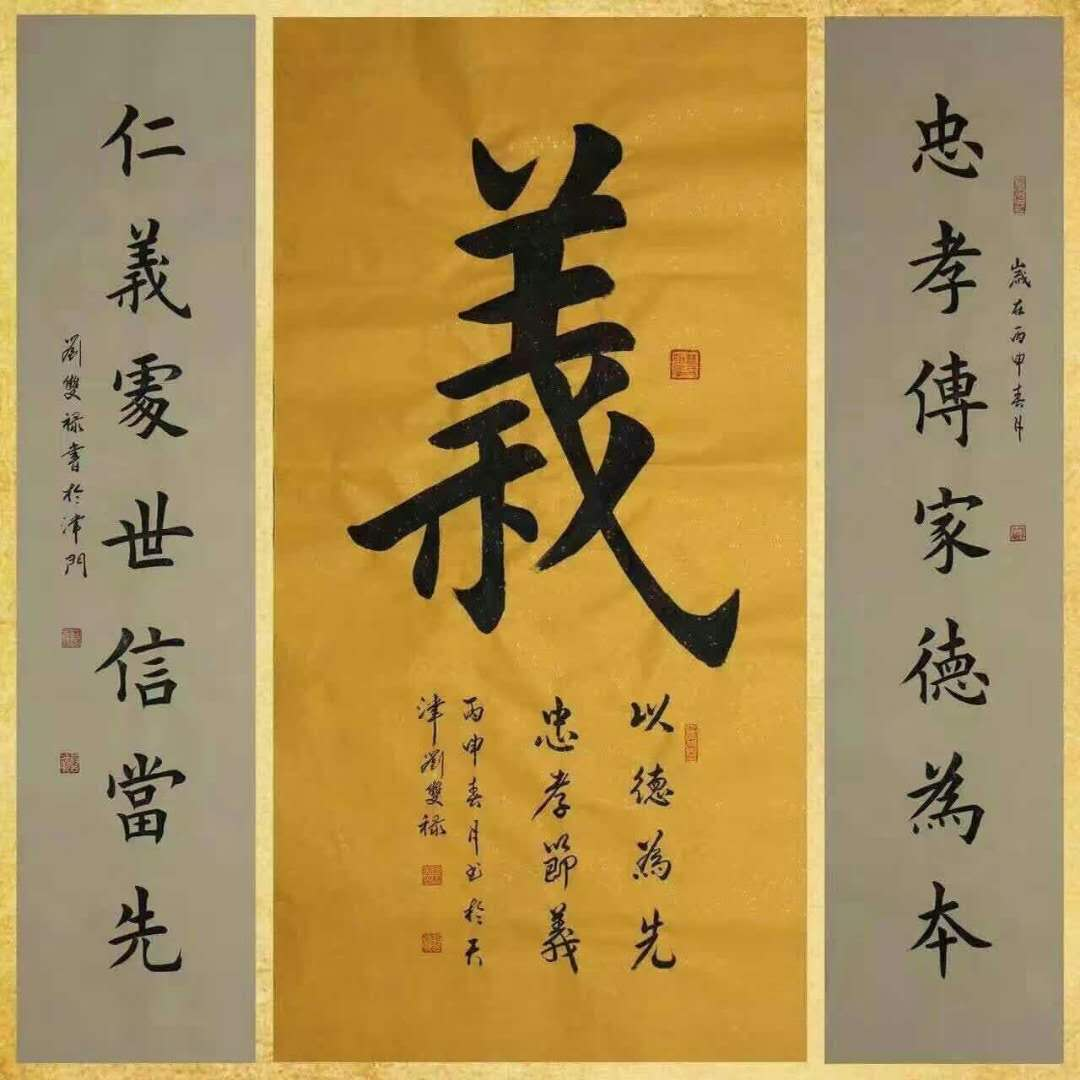 忠孝傳家德為本
歲在丙申春月
義
以德為先
忠孝節義
丙申春月书於天
津劉雙祿
仁義處世信當先
劉雙祿書於津門